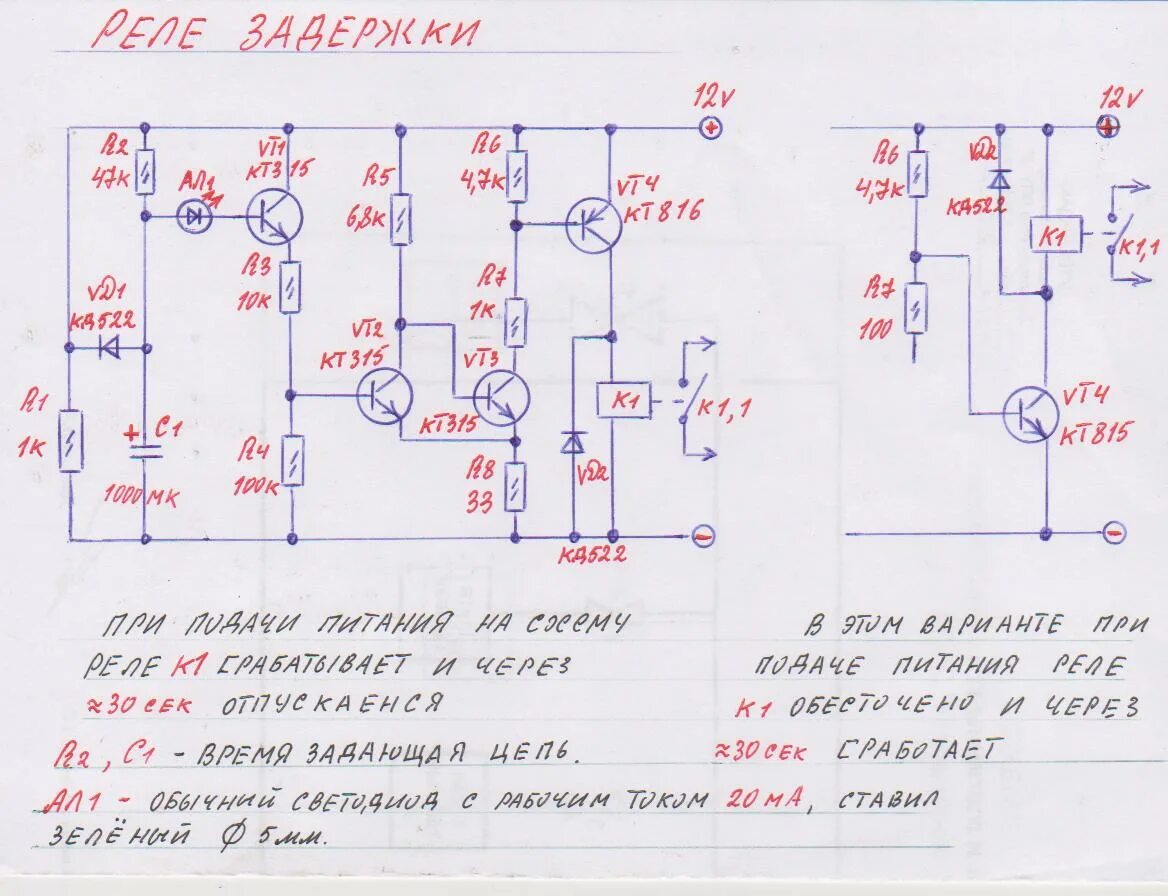 РЕЛЕ ЗАДЕРЖКИ
12V
12V
R2
47К
АЛ1
VT1
КТ315
R5
6,8К
R6
4,7К
VT4
КТ816
R6
4,7К
VD2
КД522
К1
К1,1
VD1
КД522
R3
10К
R7
1К
R7
100
VT2
КТ315
VT3
КТ315
К1
К1,1
VT4
КТ815
R1
1К
+
С1
1000МК
R4
100К
R8
33
VD2
КД522
ПРИ ПОДАЧИ ПИТАНИЯ НА СХЕМУ
РЕЛЕ К1 СРАБАТЫВАЕТ И ЧЕРЕЗ
≈30 СЕК ОТПУСКАЕНСЯ
R2, С1 - ВРЕМЯ ЗАДАЮЩАЯ ЦЕПЬ.
В ЭТОМ ВАРИАНТЕ ПРИ
ПОДАЧЕ ПИТАНИЯ РЕЛЕ
К1 ОБЕСТОЧЕНО И ЧЕРЕЗ
≈30 СЕК СРАБОТАЕТ
АЛ1 - ОБЫЧНИЙ СВЕТОДИОД С РАБОЧИМ ТОКОМ 20 МА, СТАВИЛ
ЗЕЛЁНЫЙ Ø 5 мм.